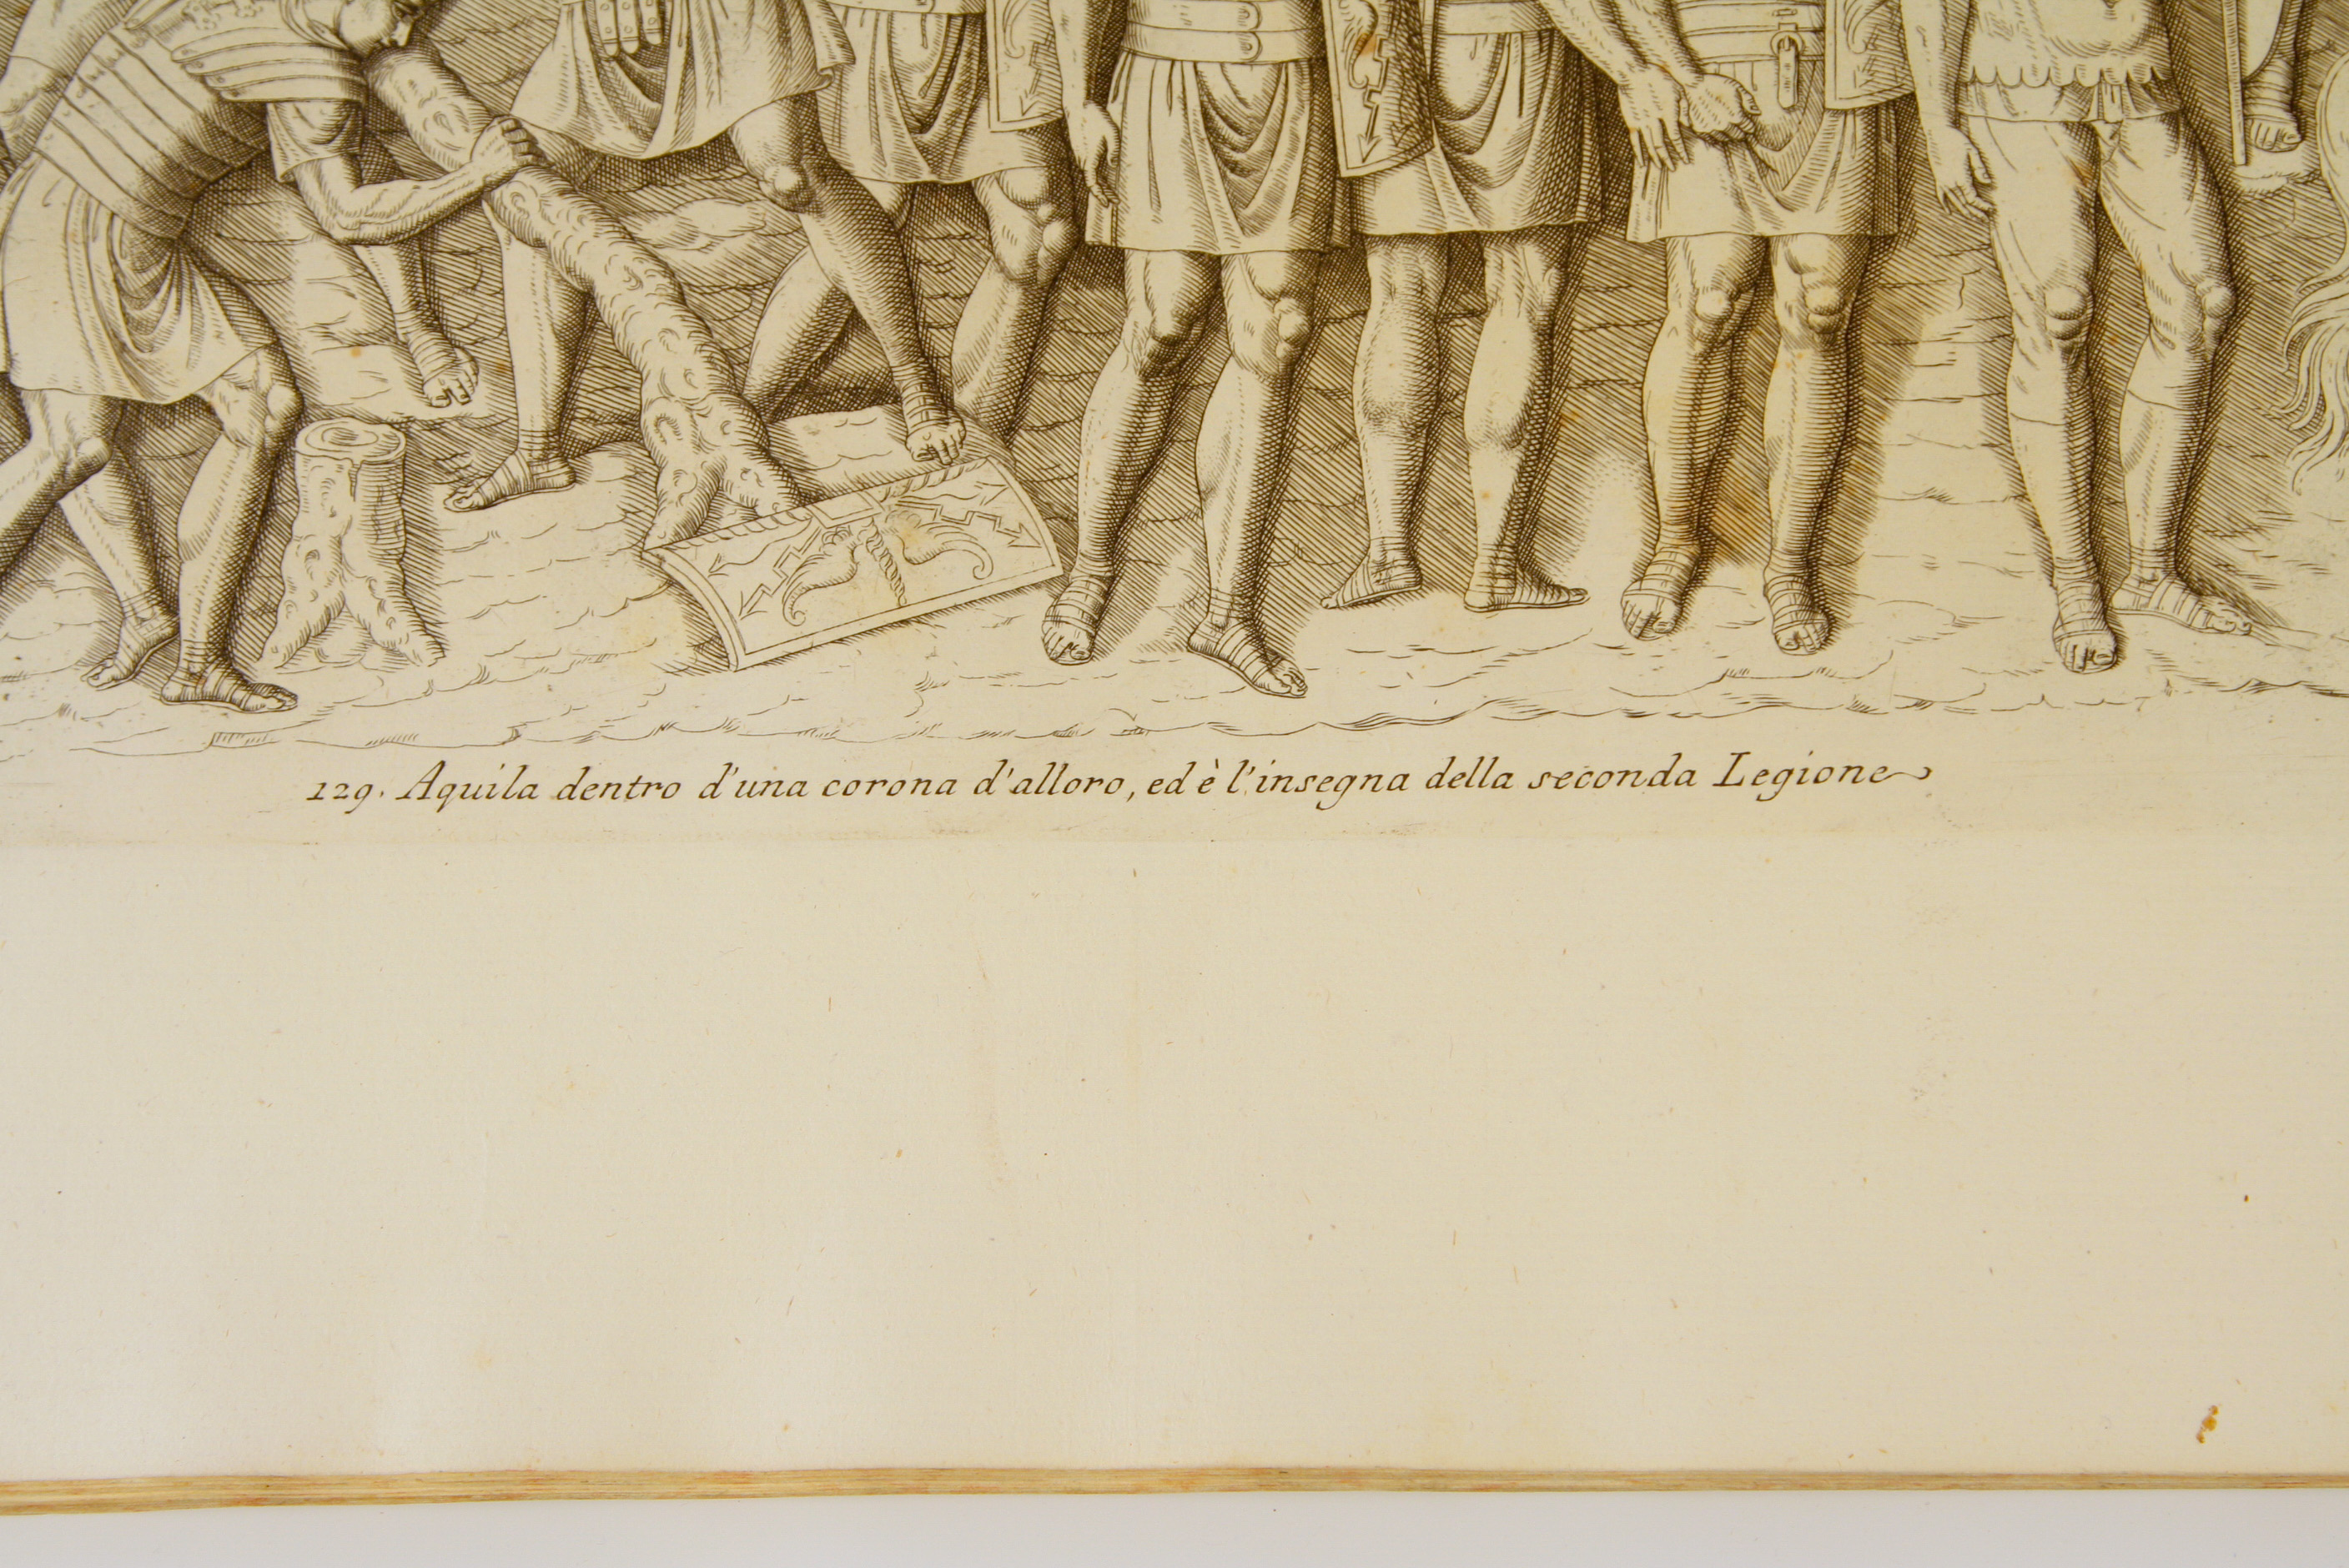 129. Aquila dentro d'una corona d'alloro, ed è l'insegna della seconda Legione